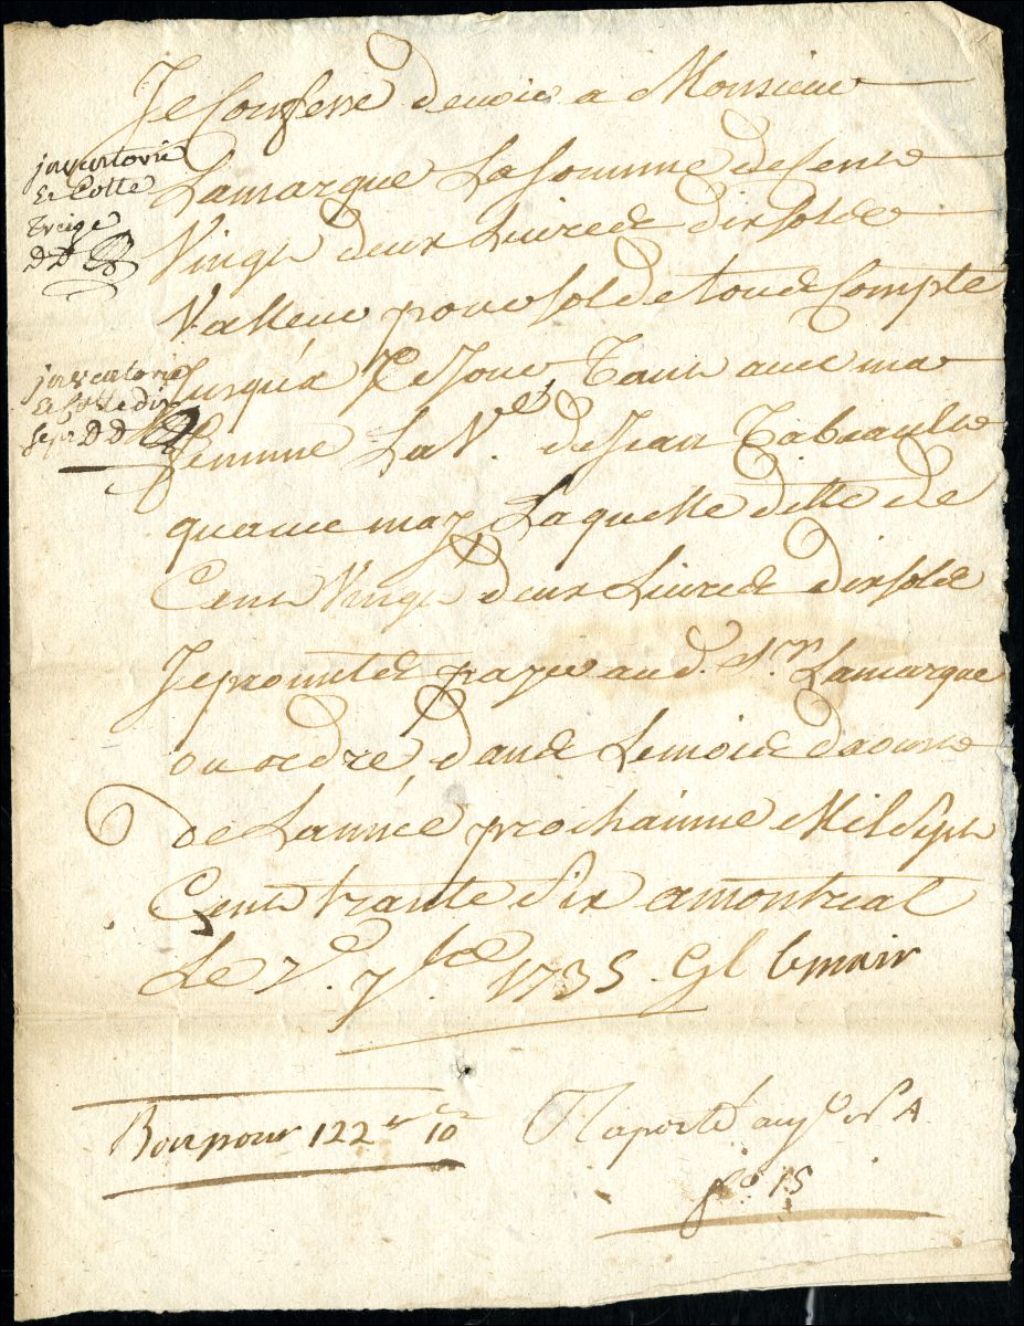 Je Confesse devoir a Monsieur
Lamarque La somme de Cent
Vingt deux Livres dix sols
Valleur pour solde tous Compte
Jusqu'a Ce Jour Tant avec ma
femme La Ve. de Jean Tabeault
qu'avec moy Laquelle dette de
Cent Vingt deux Livres dix sols
Je promets payer aud. Sr. Lamarque
ou ordre dans Le mois daoust
De Lannée prochainne Mil Sept
Cent trante Six a montreal
Le 7e. 7bre 1735.
inventorié
Et Cotté
treize
D D
inventorié
Et Cotté dix
sept D D
Bon pour 122 10
Raporté au No A
fo. 15